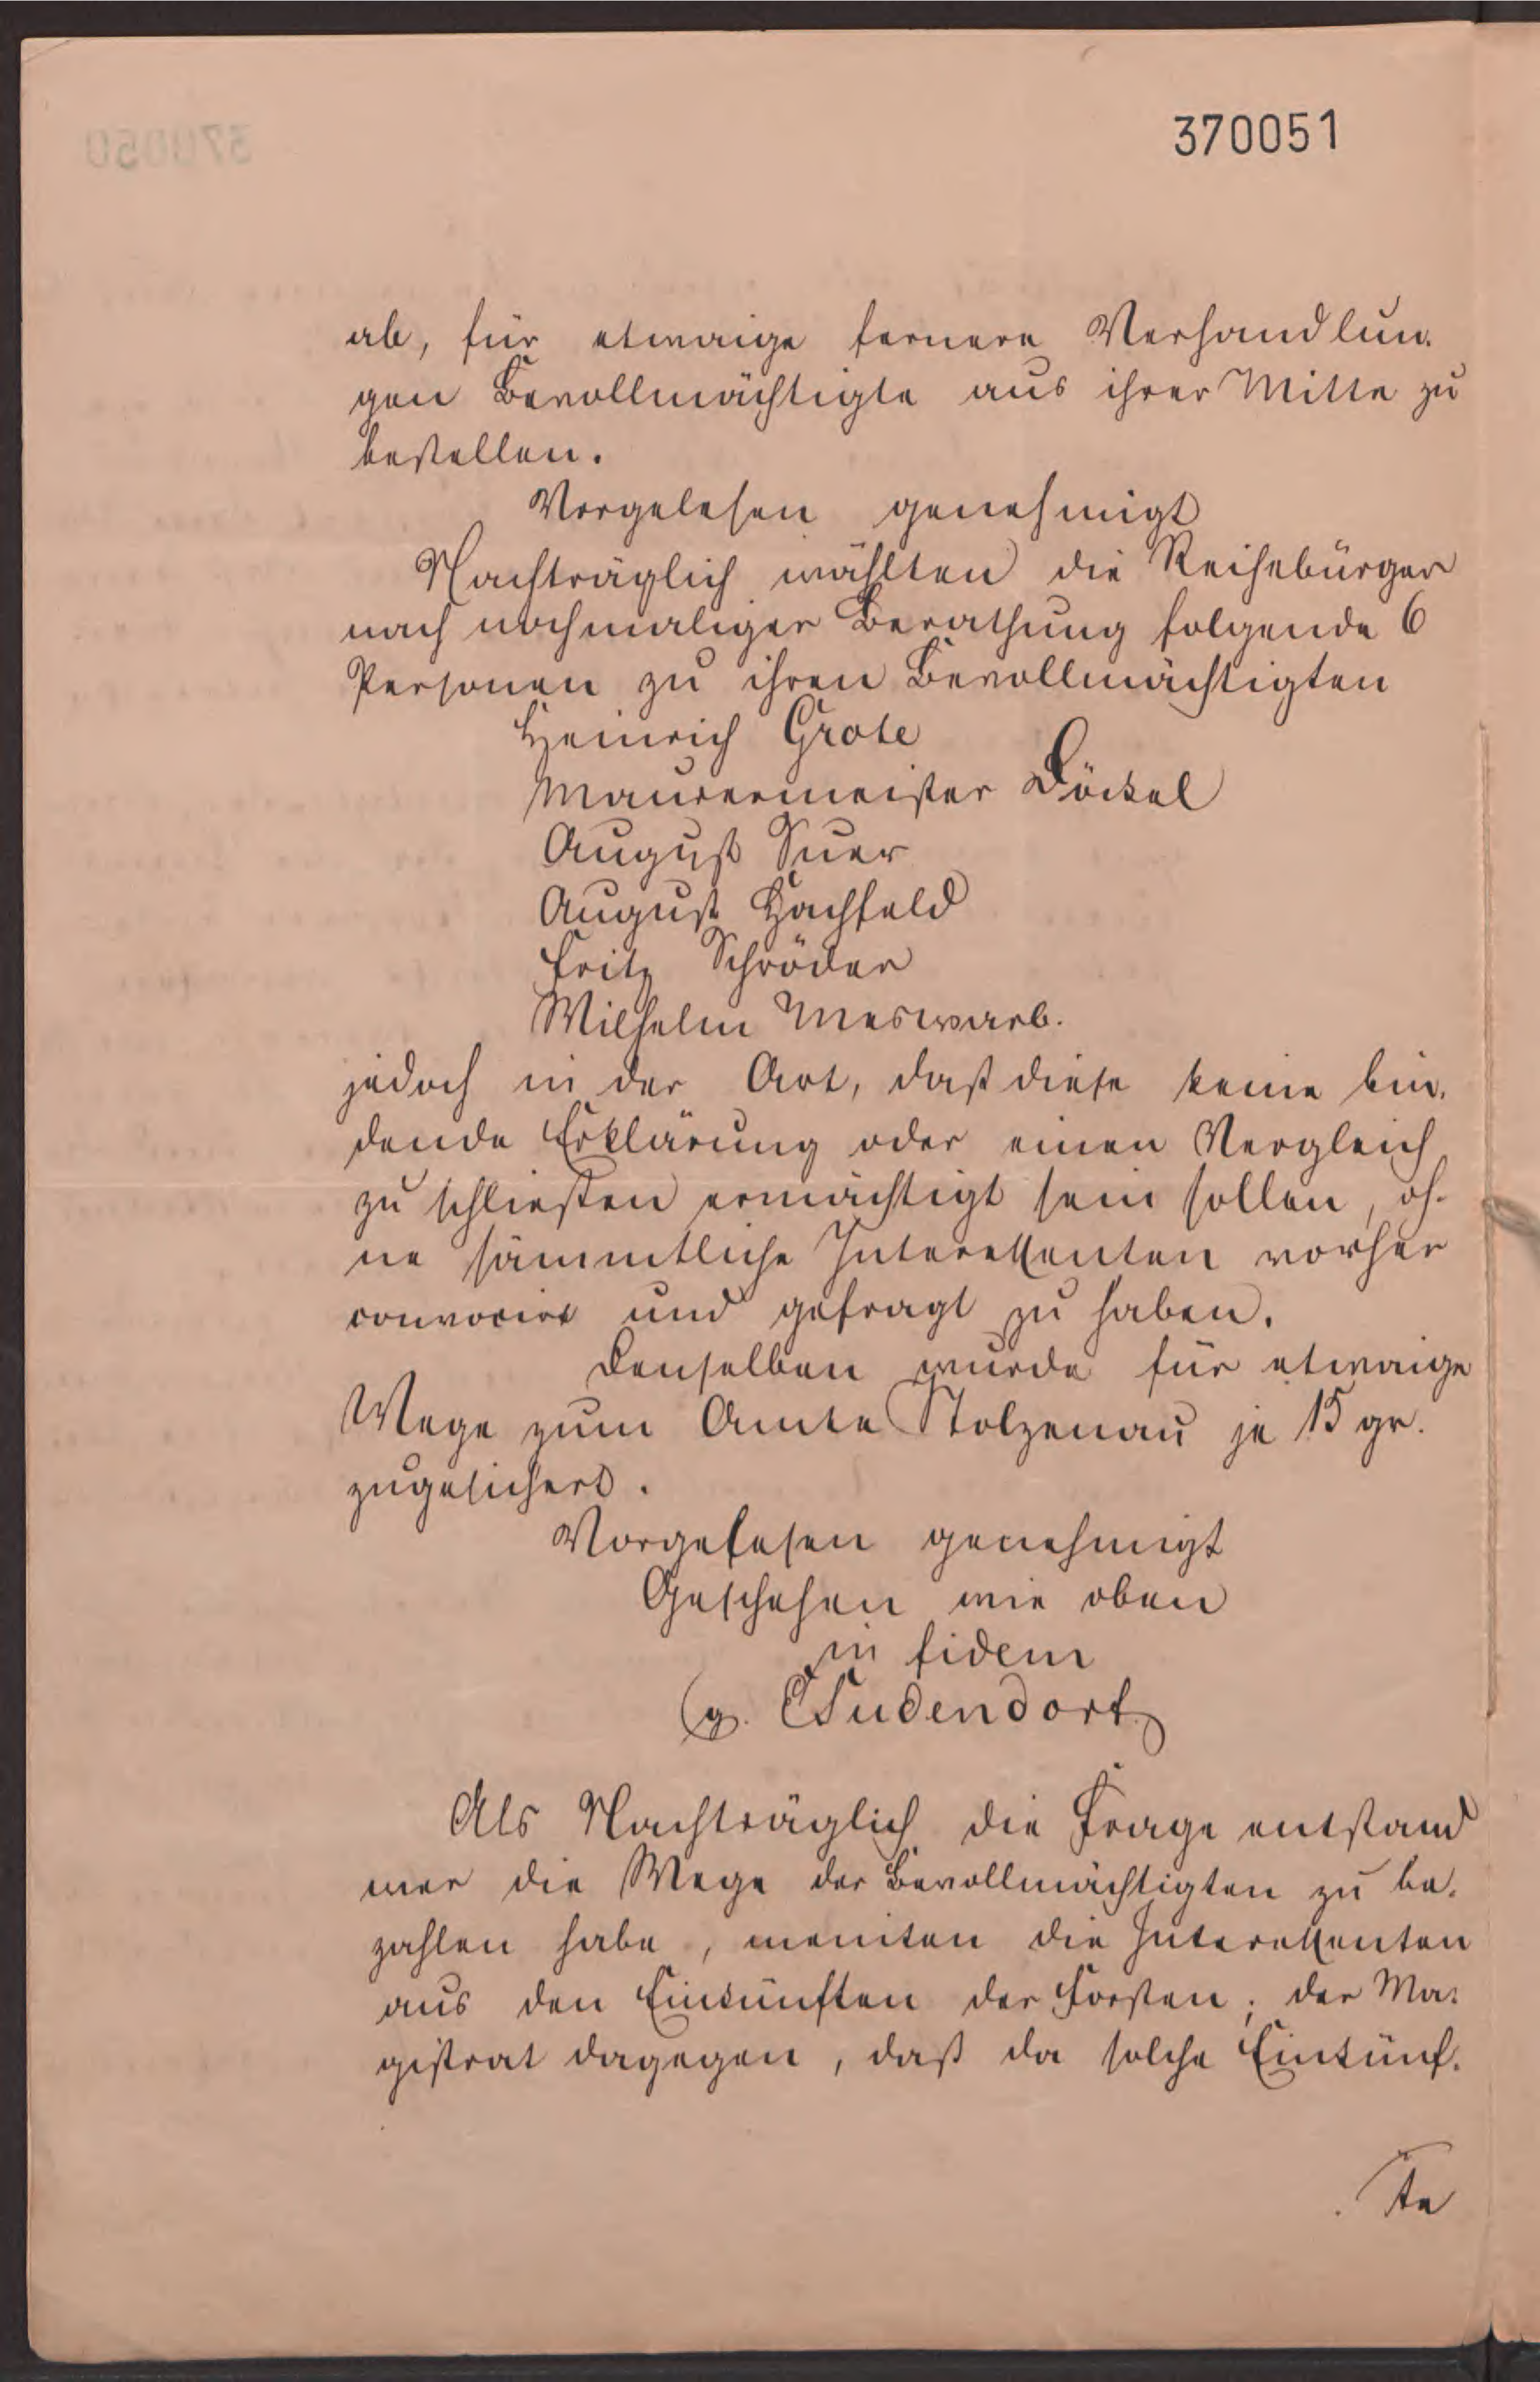 370051
ab, für etwaige fernere Verhandlun-
gen Bevollmächtigte aus ihrer Mitte zu
bestellen.
Vorgelesen genehmigt
Nachträglich wählten die Reihebürger
nach nochmaliger Berathung folgende 6
Personen zu ihren Bevollmächtigten
Heinrich Grote
Maurermeister Döckel
August Suer
August Hachfeld
Fritz Schröder
Wilhelm Meswarb.
jedoch in der Art, daß diese keine bin-
dende Erklärung oder einen Vergleich
zu schließen ermächtigt sein sollen, oh-
ne sämmtliche Interessenten vorher
convocirt und gefragt zu haben.
Denselben wurde für etwaige
Wege zum Amte Stolzenau je 15 gr.
zugesichert.
Vorgelesen genehmigt
Geschehen wie oben
in fidem
Sudendorf
Als Nachträglich die Frage entstand
wer die Wege der Bevollmächtigten zu be-
zahlen habe, meinten die Interessenten
aus den Einkünften der Forsten; der Ma-
gistrat dagegen, daß da solche Einkünf-
te